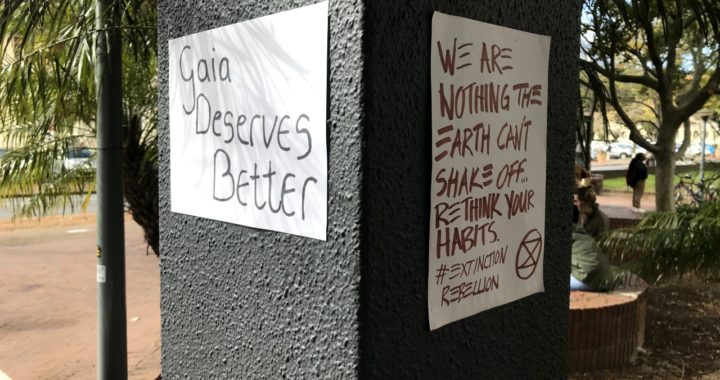 Gaia
Deserves
Better
WE ARE
NOTHING THE
EARTH CAN'T
SHAKE OFF...
RETHINK YOUR
HABITS.
#EXTINCTION
REBELLION